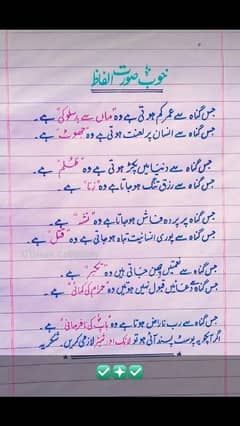 خوب صورت الفاظ
جس گناہ سے عمر کم ہوتی ہے وہ "ماں سے بدسلوکی" ہے۔
جس گناہ سے انسان پر لعنت ہوتی ہے وہ "جھوٹ" ہے۔
جس گناہ سے دنیا میں پکڑ ہوتی ہے وہ "ظلم" ہے۔
جس گناہ سے رزق تنگ ہو جاتا ہے وہ "زنا" ہے۔
جس گناہ پر پردہ فاش ہو جاتا ہے وہ "نشہ" ہے۔
جس گناہ سے پوری انسانیت تباہ ہو جاتی ہے وہ "قتل" ہے۔
جس گناہ سے نعمتیں چھن جاتی ہیں وہ "تکبر" ہے۔
جس گناہ سے دعائیں قبول نہیں ہوتیں وہ "حرام کی کمائی" ہے۔
جس گناہ سے رب ناراض ہوتا ہے وہ "باپ کی نافرمانی" ہے۔
اگر آپکو یہ پوسٹ پسند آئی ہو تو لائک اور شیئر لازمی کریں۔ شکریہ